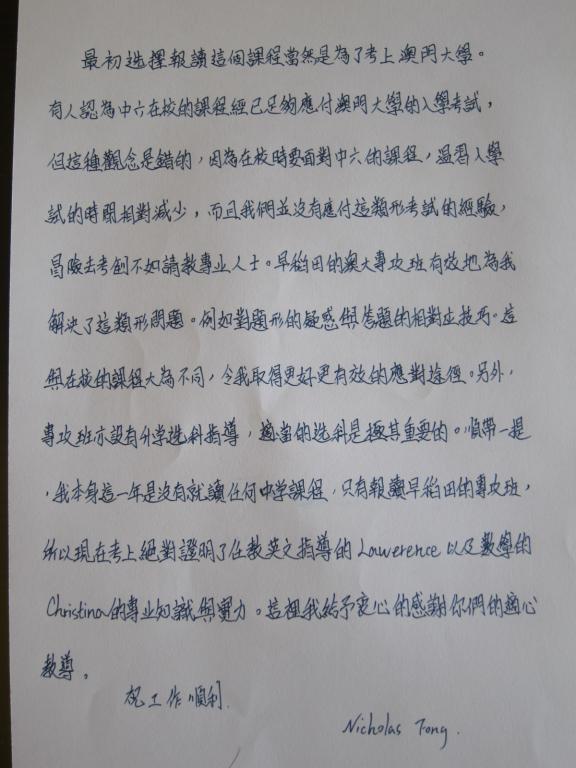 最初选擇報讀這個課程當然是為了考上澳門大學。
有人認為中六在校的課程經已足夠應付澳門大學的入學考試，
但這種觀念是錯的，因為在校時要面對中六的課程，溫習入學
試的時間相對減少，而且我們並沒有應付這類形考試的經驗，
冒險去考倒不如請教專业人士。早稻田的澳大專攻班有效地為我
解決了這類形問題。例如對題形的疑惑與答題的相對应技巧。這
與在校的課程大為不同，令我取得更好更有效的應對途徑。另外，
專攻班亦設有升学选科指導，適當的选科是極其重要的。順帶一提
，我本身這一年是沒有就讀任何中学課程，只有報讀早稻田的專攻班，
所以現在考上絕對證明了任教英文指導的Lawerence以及數學的
Christina的專业知識與實力。這裡我給予衷心的感謝你們的適心
教導。
祝工作順利.
Nicholas Tong.